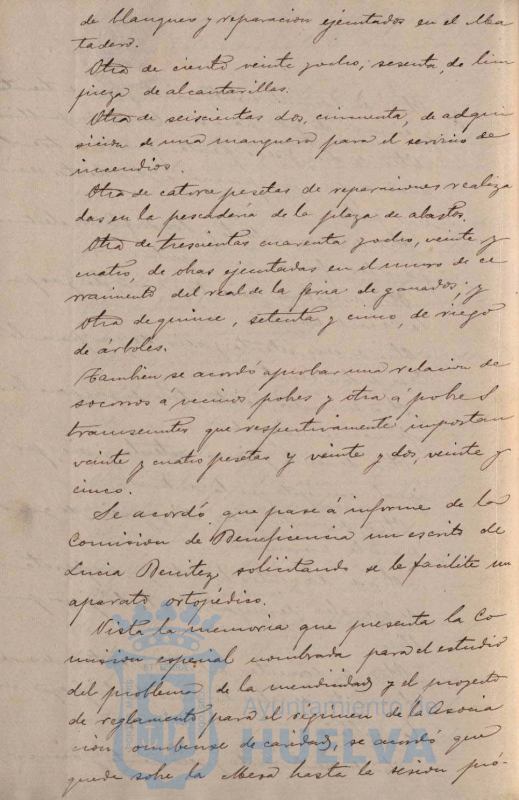 de blanqueo y reparacion ejecutados en el Ma
tadero.
Otra de ciento veinte y ocho, sesenta, de lim
pieza de alcantarillas.
Otra de seiscientas dos, cincuenta, de adqui
sicion de una manguera para el servicio de
incendios.
Otra de catorce pesetas de reparaciones realiza
das en la pescadería de la plaza de abastos.
Otra de trescientas cuarenta y ocho, veinte y
cuatro, de obras ejecutadas en el muro de ce
rramiento del real de la feria de ganados; y
Otra de quince, setenta y cinco, de riego
de árboles.
Tambien se acordó aprobar una relacion de
socorros á vecinos pobres y otra á pobres
transeuntes que respectivamente importan
veinte y cuatro pesetas y veinte y dos, veinte y
cinco.
Se acordó que pase á informe de la
Comision de Beneficencia un escrito de
Lucia Benitez, solicitando se le facilite un
aparato ortopédico.
Vista la memoria que presenta la Co
mision especial nombrada para el estudio
del problema de la mendicidad y el proyecto
de reglamento para el regimen de la Asocia
cion onubense de caridad, se acordó que
quede sobre la Mesa hasta la sesion pró-
Ayuntamiento de
HUELVA